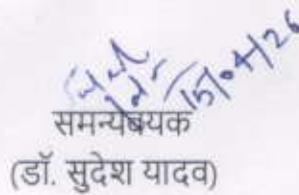 15/04/26
समन्यबयक
(डॉ. सुदेश यादव)